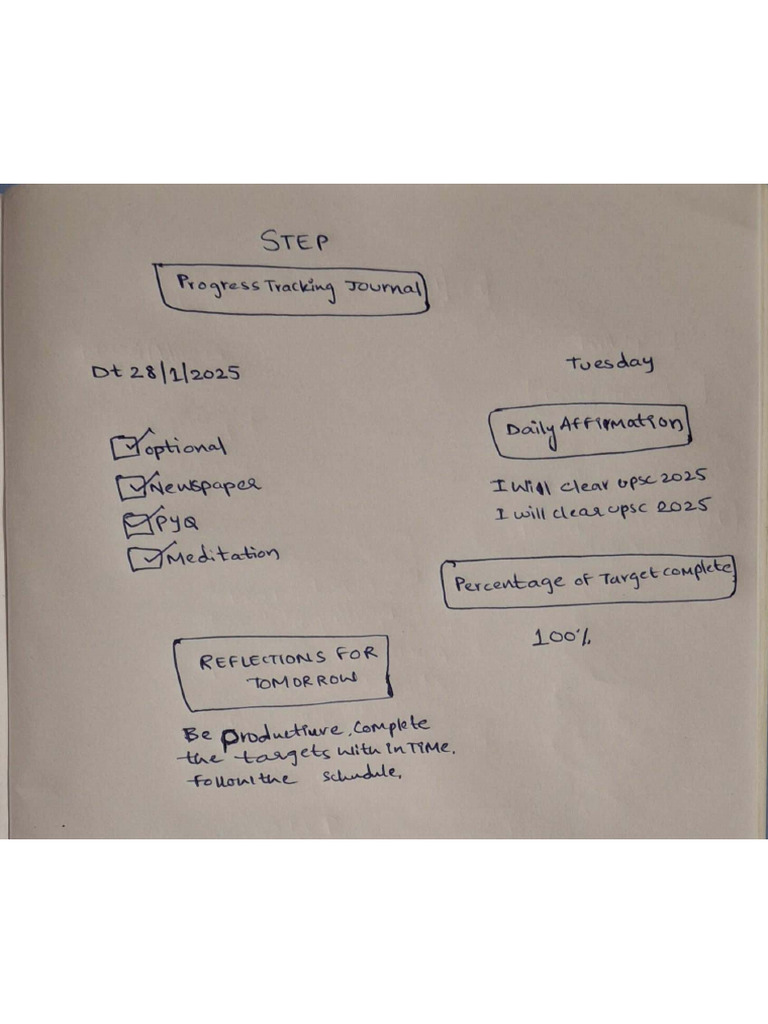 STEP
Progress Tracking Journal
Dt 28/1/2025
Tuesday
optional
Newspaper
PYQ
Meditation
Daily Affirmation
I will clear upsc 2025
I will clear upsc 2025
Percentage of Target complete
100%
REFLECTIONS FOR
TOMORROW
Be productiure, complete
the targets with in TIME.
follow the schudule.